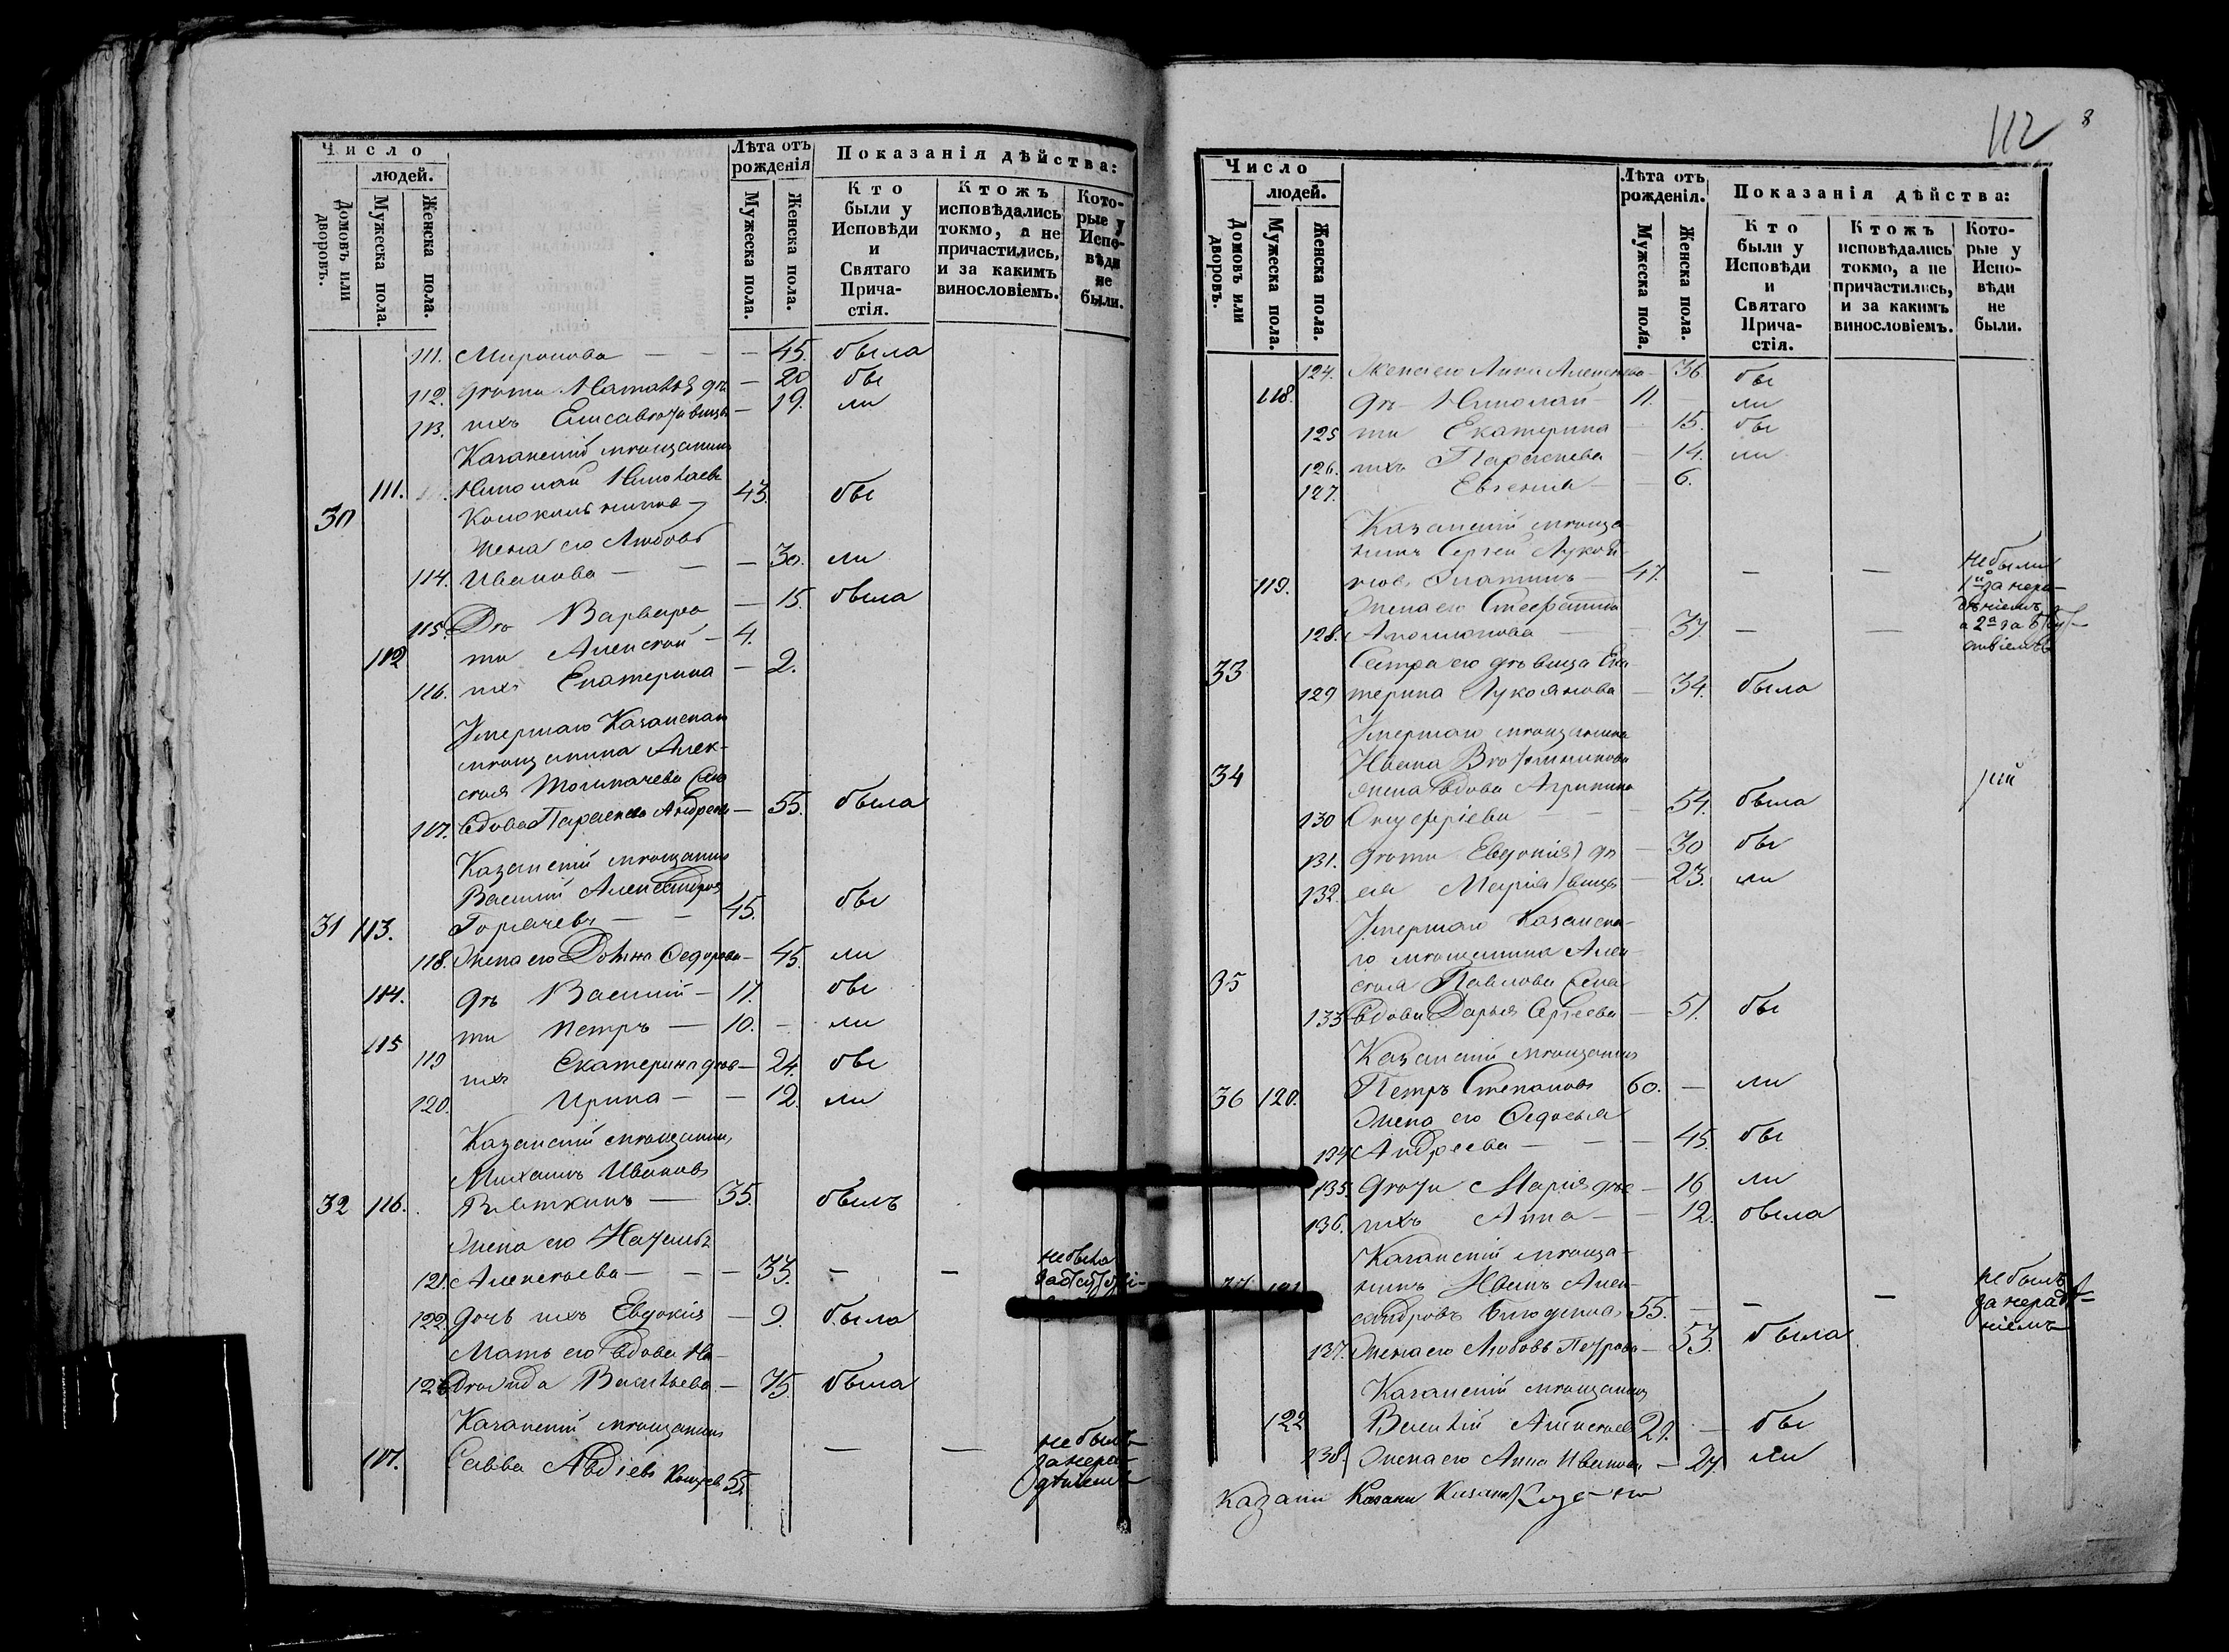 Число
людей.
Домовъ или дворовъ.
Мужеска пола.
Женска пола.
Лѣта отъ рожденія
Мужеска пола.
Женска пола.
Показанія дѣйства:
Кто были у Исповѣди и Святаго Прича-стія.
Ктожъ исповѣдались токмо, а не причастились, и за какимъ винословіемъ.
Кото-рые у Испо-вѣди не были.
111. Миронова — — — 45. была
112. дѣти Наталья дѣ — 20 бы
113. ихъ Елисавета вицы — 19. ли
Казанскій мѣщанинъ
30 111. Николай Николаевъ 43. бы
Колокольниковъ
Жена его Любовь
114. Иванова — — — 30. ли
115. Дѣ Варвара — 15. была
112 ти Алексѣй — 4.
116. ихъ Екатерина — 2.
Умершаго Казанскаго
мѣщанина Алек-
сѣя Толмачева жена
117. вдова Параскева Андреева — 55. была
Казанскій мѣщанинъ
Василій Александровъ
31 113. Горчачевъ — — 45. бы
118. Жена его Домна Федорова — 45. ли
114. дѣ Василій — 17. бы
115 ти Петръ — 10. — ли
119 ихъ Екатерина дѣв — 24. бы
120. Ирина — — 12. ли
Казанскій мѣщанинъ
Михаилъ Ивановъ
32 116. Вяткинъ — 35. былъ
Жена его Наталья
121. Алексѣева — — — 33. — — не была за отсутстві-
122. дочь ихъ Евдокія — 9. была
Мать его вдова На-
123 дежда Васильева — 75. была
Казанскій мѣщанинъ
117. Савва Авдіевъ 55. — — не былъ за нера-дѣніемъ
112 8
Число
людей.
Домовъ или дворовъ.
Мужеска пола.
Женска пола.
Лѣта отъ рожденія.
Мужеска пола.
Женска пола.
Показанія дѣйства:
Кто были у Исповѣди и Святаго Прича-стія.
Ктожъ исповѣдались токмо, а не причастились, и за какимъ винословіемъ.
Кото-рые у Испо-вѣди не были.
124. Жена его Анна Алексѣева — 36. бы
118. дѣ Николай — 11. — ли
125 ти Екатерина — 15. бы
126. ихъ Параскева — 14. ли
127. Евгенія — — 6.
Казанскій мѣща-
нинъ Сергей Лукоя-
119. новъ Платинъ — 47. — — не были 1й за нера-дѣніемъ а 2я за отсут-ствіемъ
Жена его Стефанида
128. Аполлонова — — 37. — —
33 Сестра его дѣвица Ека-
129 терина Лукоянова — 34. была
Умершаго мѣщанина
34 Ивана
жена вдова Агрипина
130 Онуфріева — — — 54. была
131. дѣти Евдокія дѣ — 30 бы
132. ея Марія вицы — 23. ли
Умершаго Казанска-
го мѣщанина Алек-
35 сѣя Павлова жена
133 вдова Дарья Сергеева — 51. бы
Казанскій мѣщанинъ
36 120. Петръ Степановъ 60. — ли
Жена его Федосья
134 Андреева — — — 45. бы
135. дѣти Марія дѣв — 16 ли
136. ихъ Анна — — 12. была
Казанскій мѣща-
37 121 нинъ Иванъ Алек-
сандровъ 55. — — — не былъ за нерадѣ-ніемъ
137. Жена его Любовь Петрова — 53. была
Казанскій мѣщанинъ
122 Василій Алексѣевъ 29. — бы
138. Жена его Анна Иванова — 27. ли
Казани Казани Казани